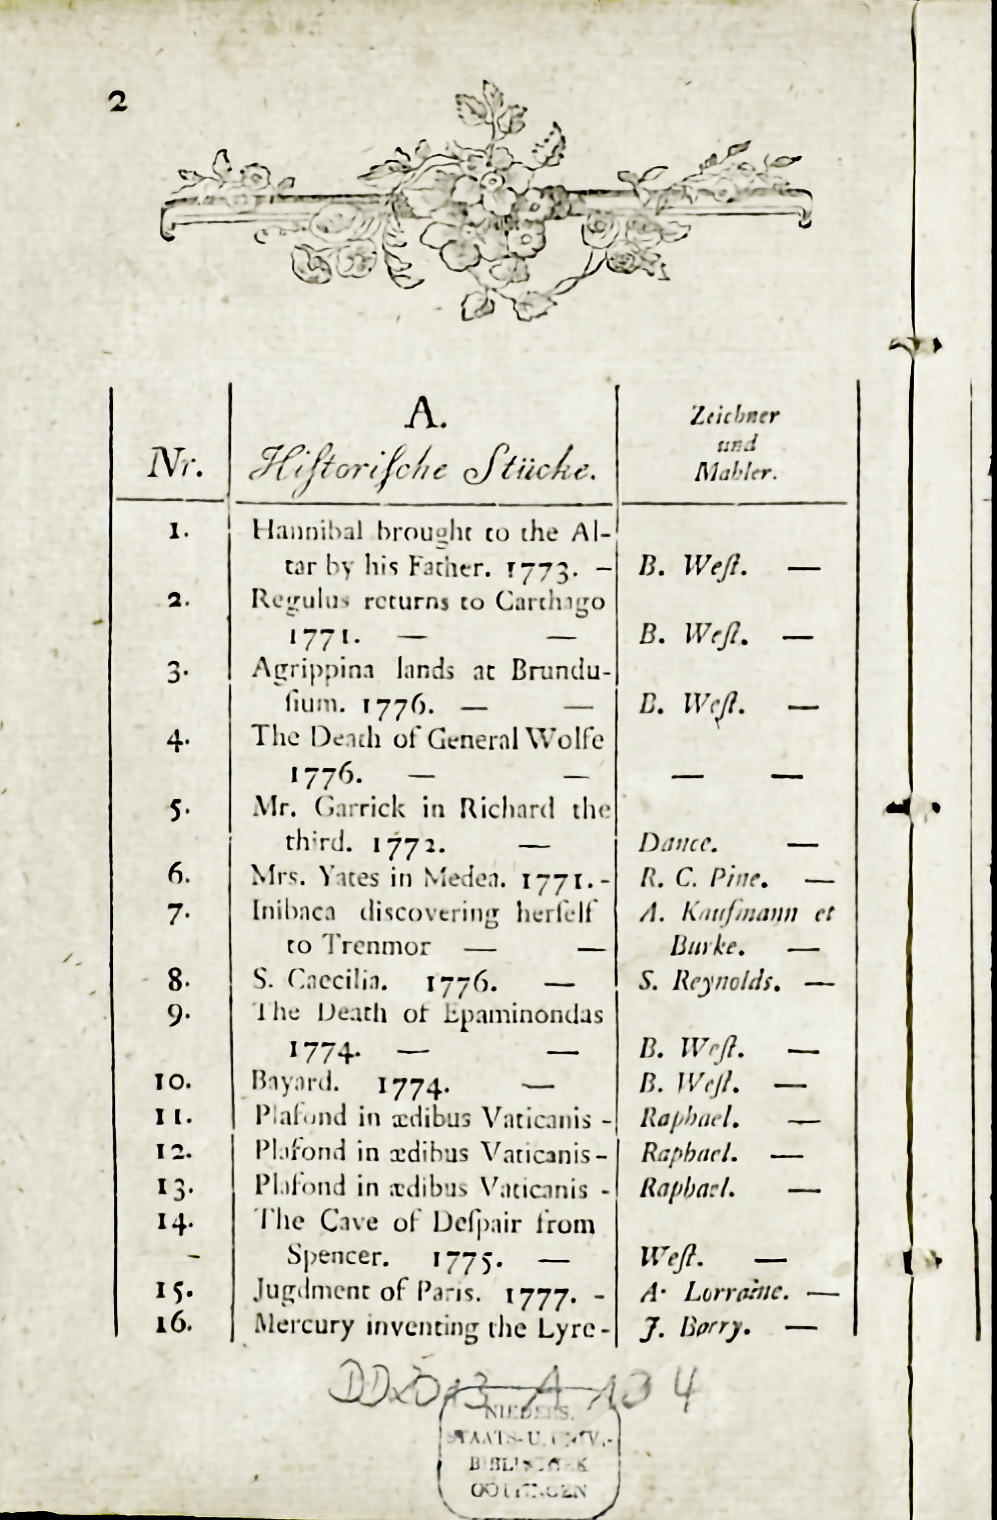 2
A.
Zeichner
und
Nr.
Hiſtoriſche Stücke.
Mahler.
1. Hannibal brought to the Al-
tar by his Father. 1773. – B. Weſt. —
2. Regulus returns to Carthago
1771. — — B. Weſt. —
3. Agrippina lands at Brundu-
ſium. 1776. — — B. Weſt. —
4. The Death of General Wolfe
1776. — — — —
5. Mr. Garrick in Richard the
third. 1772. — Dance. —
6. Mrs. Yates in Medea. 1771. - R. C. Pine. —
7. Inibaca discovering herſelf A. Kaufmann et
to Trenmor — — Burke. —
8. S. Caecilia. 1776. — S. Reynolds. —
9. The Death of Epaminondas
1774. — — B. Weſt. —
10. Bayard. 1774. — B. Weſt. —
11. Plafond in ædibus Vaticanis - Raphael. —
12. Plafond in ædibus Vaticanis - Raphael. —
13. Plafond in ædibus Vaticanis - Raphael. —
14. The Cave of Deſpair from
– Spencer. 1775. — Weſt. —
15. Jugdment of Paris. 1777. - A. Lorraine. —
16. Mercury inventing the Lyre - J. Barry. —
A 134
NIEDERS.
STAATS-U. UNIV.-
BIBLIOTHEK
GÖTTINGEN